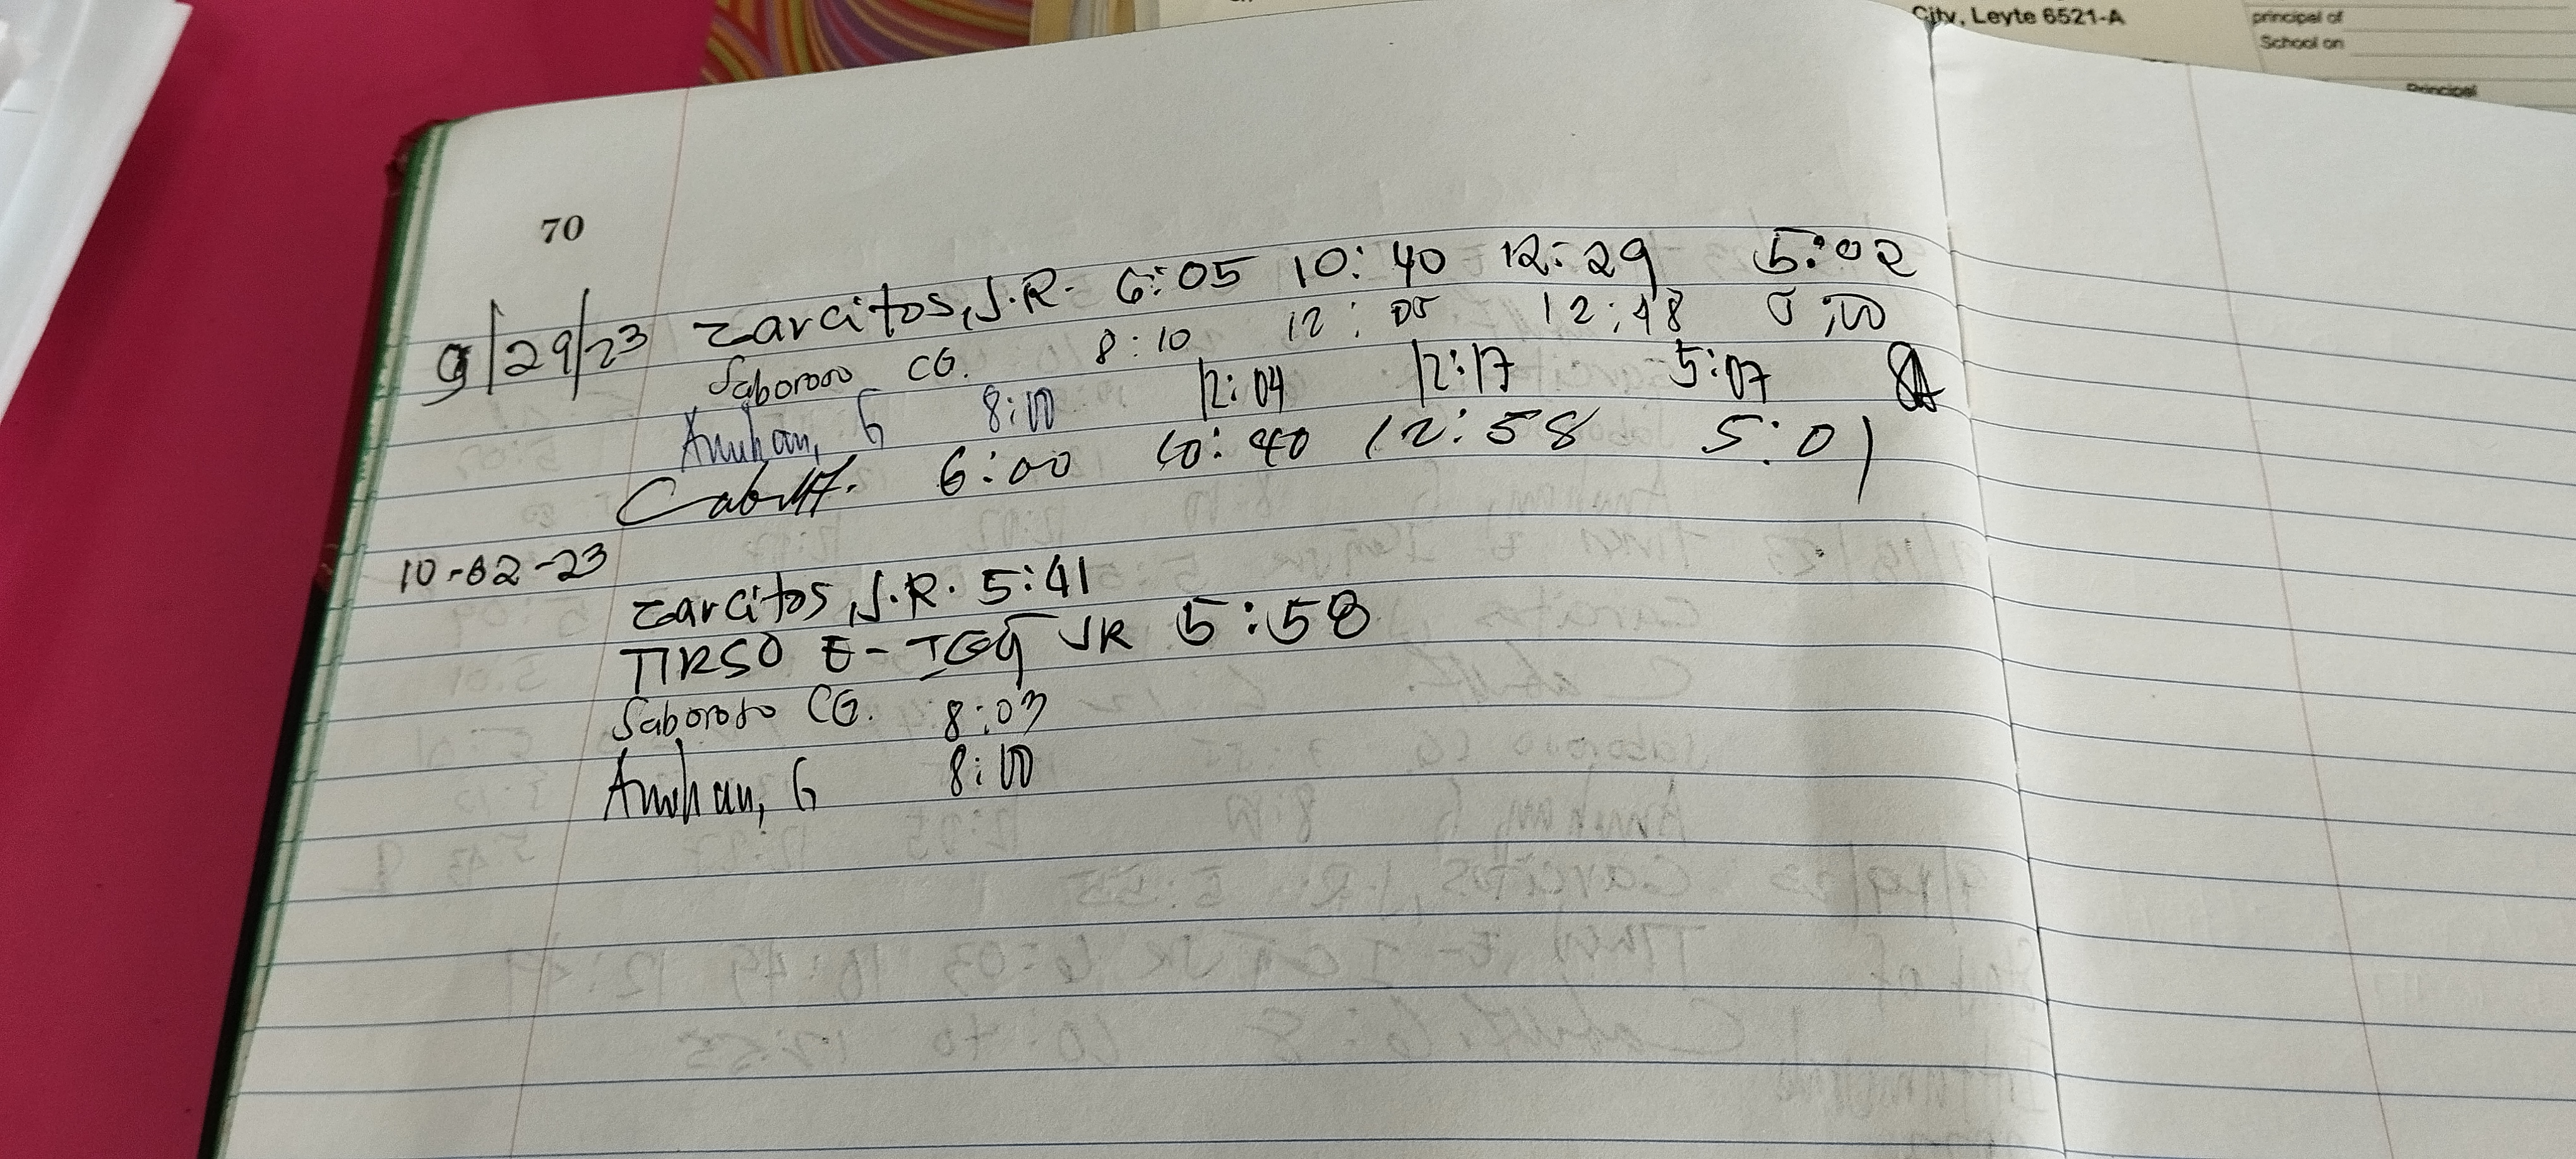 City, Leyte 6521-A
principal of
School on
Principal
70
9/29/23 Zarcitos, J.R. 6:05 10:40 12:29 5:02
Saboroso CG. 8:10 12:05 12:48 5:00
Amihan, G 8:00 12:04 12:17 5:07
6:00 10:40 12:58 5:01
10-02-23
Zarcitos, J.R. 5:41
TIRSO E- JR 5:58
Saboroso CG. 8:03
Amihan, G 8:00